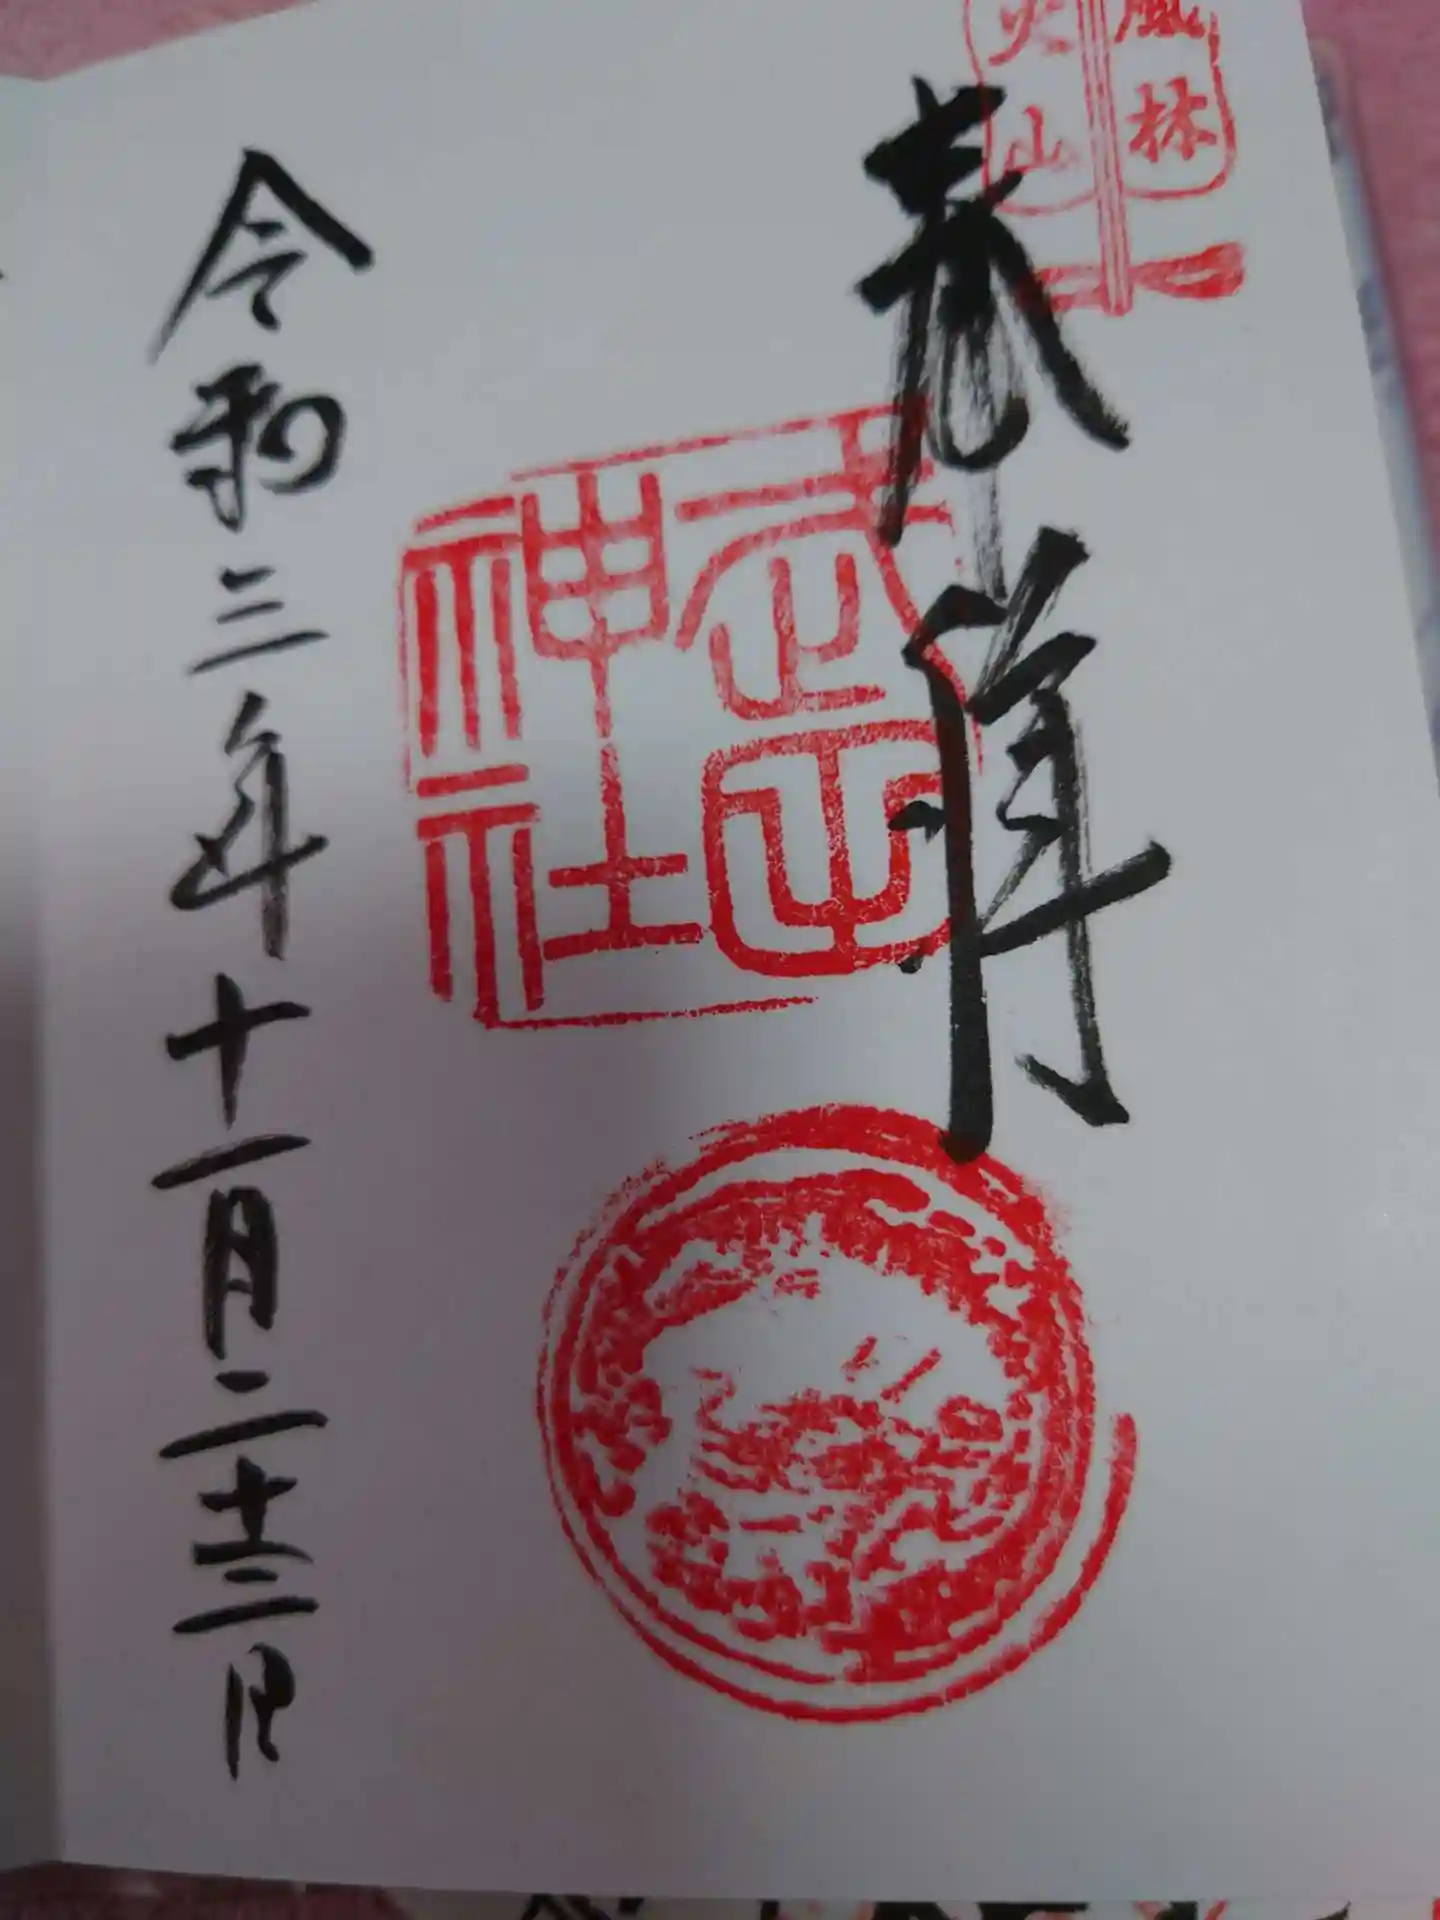 風林
火山
奉拝
武田
神社
令和三年十一月二十三日